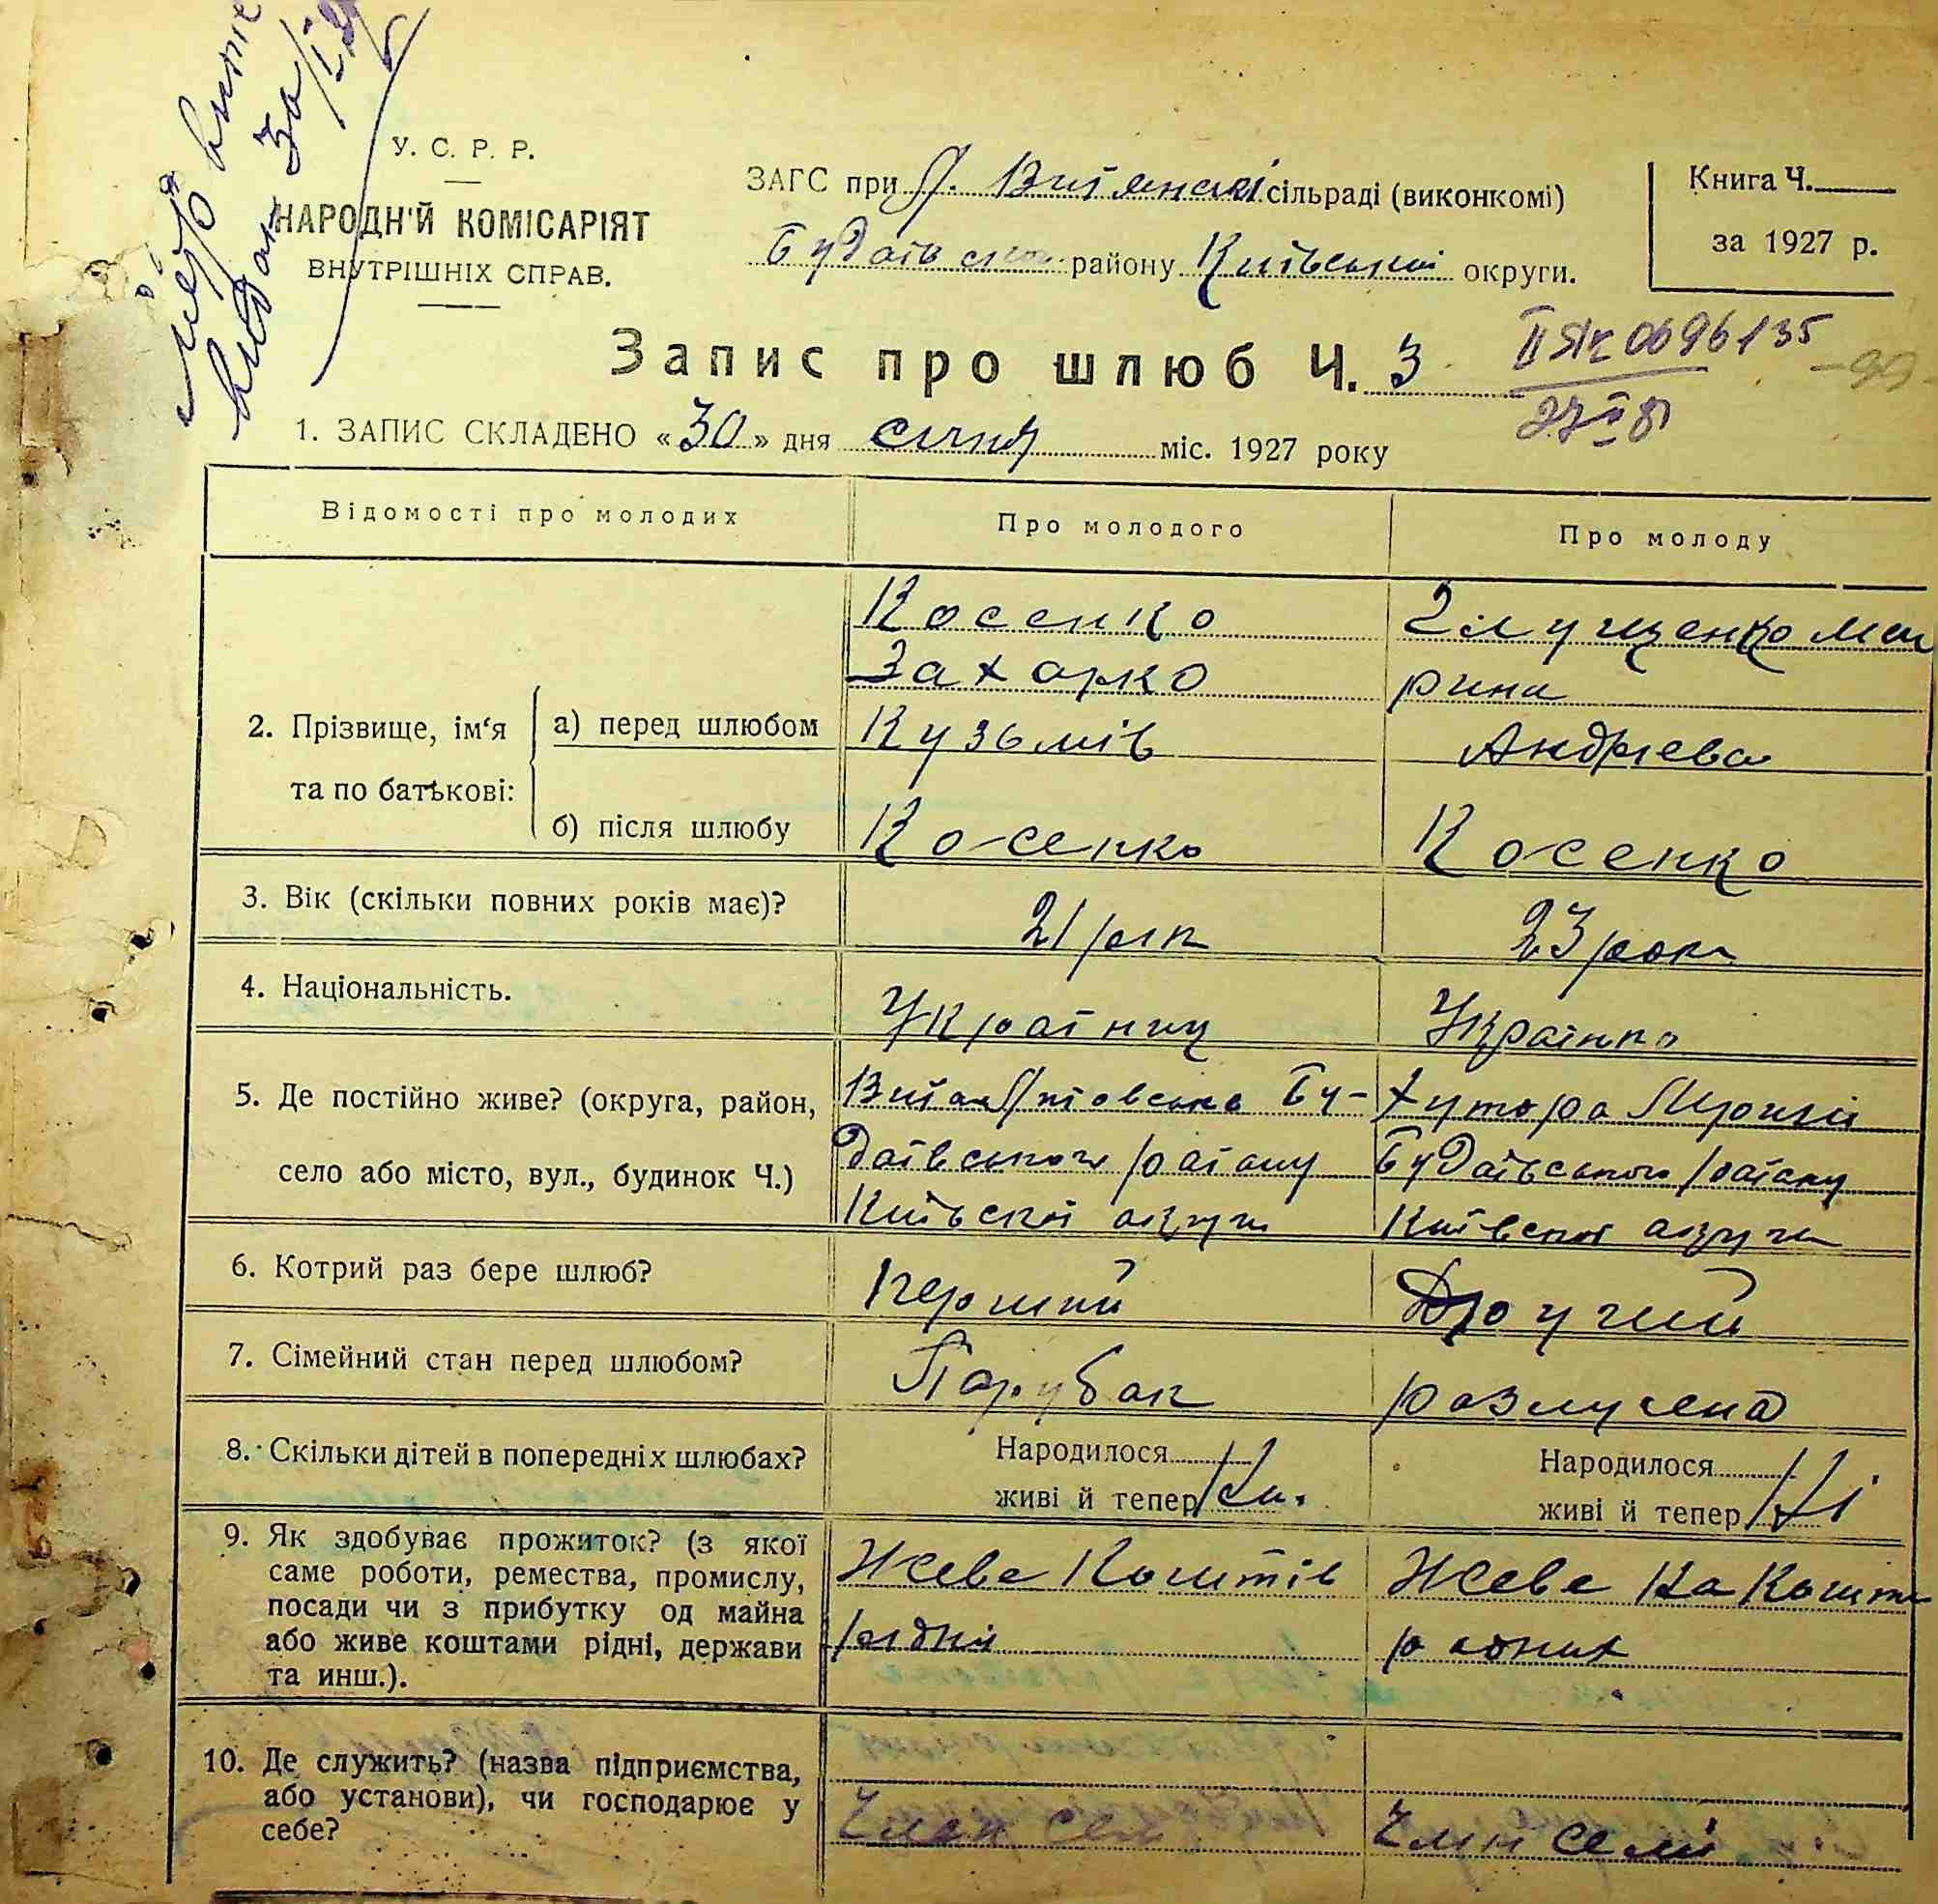 У. С. Р. Р.
НАРОДН'Й КОМІСАРІЯТ
ВНУТРІШНІХ СПРАВ.
ЗАГС при Л. Витянські сільраді (виконкомі)
Будаївськ району Київської округи.
Книга Ч.
за 1927 р.
Запис про шлюб Ч. 3
II ЯК 0696135
1. ЗАПИС СКЛАДЕНО «30» дня січня міс. 1927 року
Відомості про молодих
Про молодого
Про молоду
2. Прізвище, ім'я та по батькові:
а) перед шлюбом
Косенко
Захарко
Кузьмів
Глущенко Ма
рина
Андрієва
б) після шлюбу
Косенко
Косенко
3. Вік (скільки повних років має)?
21 рік
23 роки
4. Національність.
Українец
Українка
5. Де постійно живе? (округа, район,
село або місто, вул., будинок Ч.)
Бу-
даївського раіону
Київскої округи
Хутора
Будаївського раіону
Київскої округи
6. Котрий раз бере шлюб?
Перший
Другий
7. Сімейний стан перед шлюбом?
Парубак
розлучена
8. Скільки дітей в попередніх шлюбах?
Народилося
живі й тепер
Народилося
живі й тепер Ні
9. Як здобуває прожиток? (з якої
саме роботи, ремества, промислу,
посади чи з прибутку од майна
або живе коштами рідні, держави
та инш.).
Жеве Коштів
рідні
Жеве На Кошти
родних
10. Де служить? (назва підприємства,
або установи), чи господарює у
себе?
Член сем
Член семї